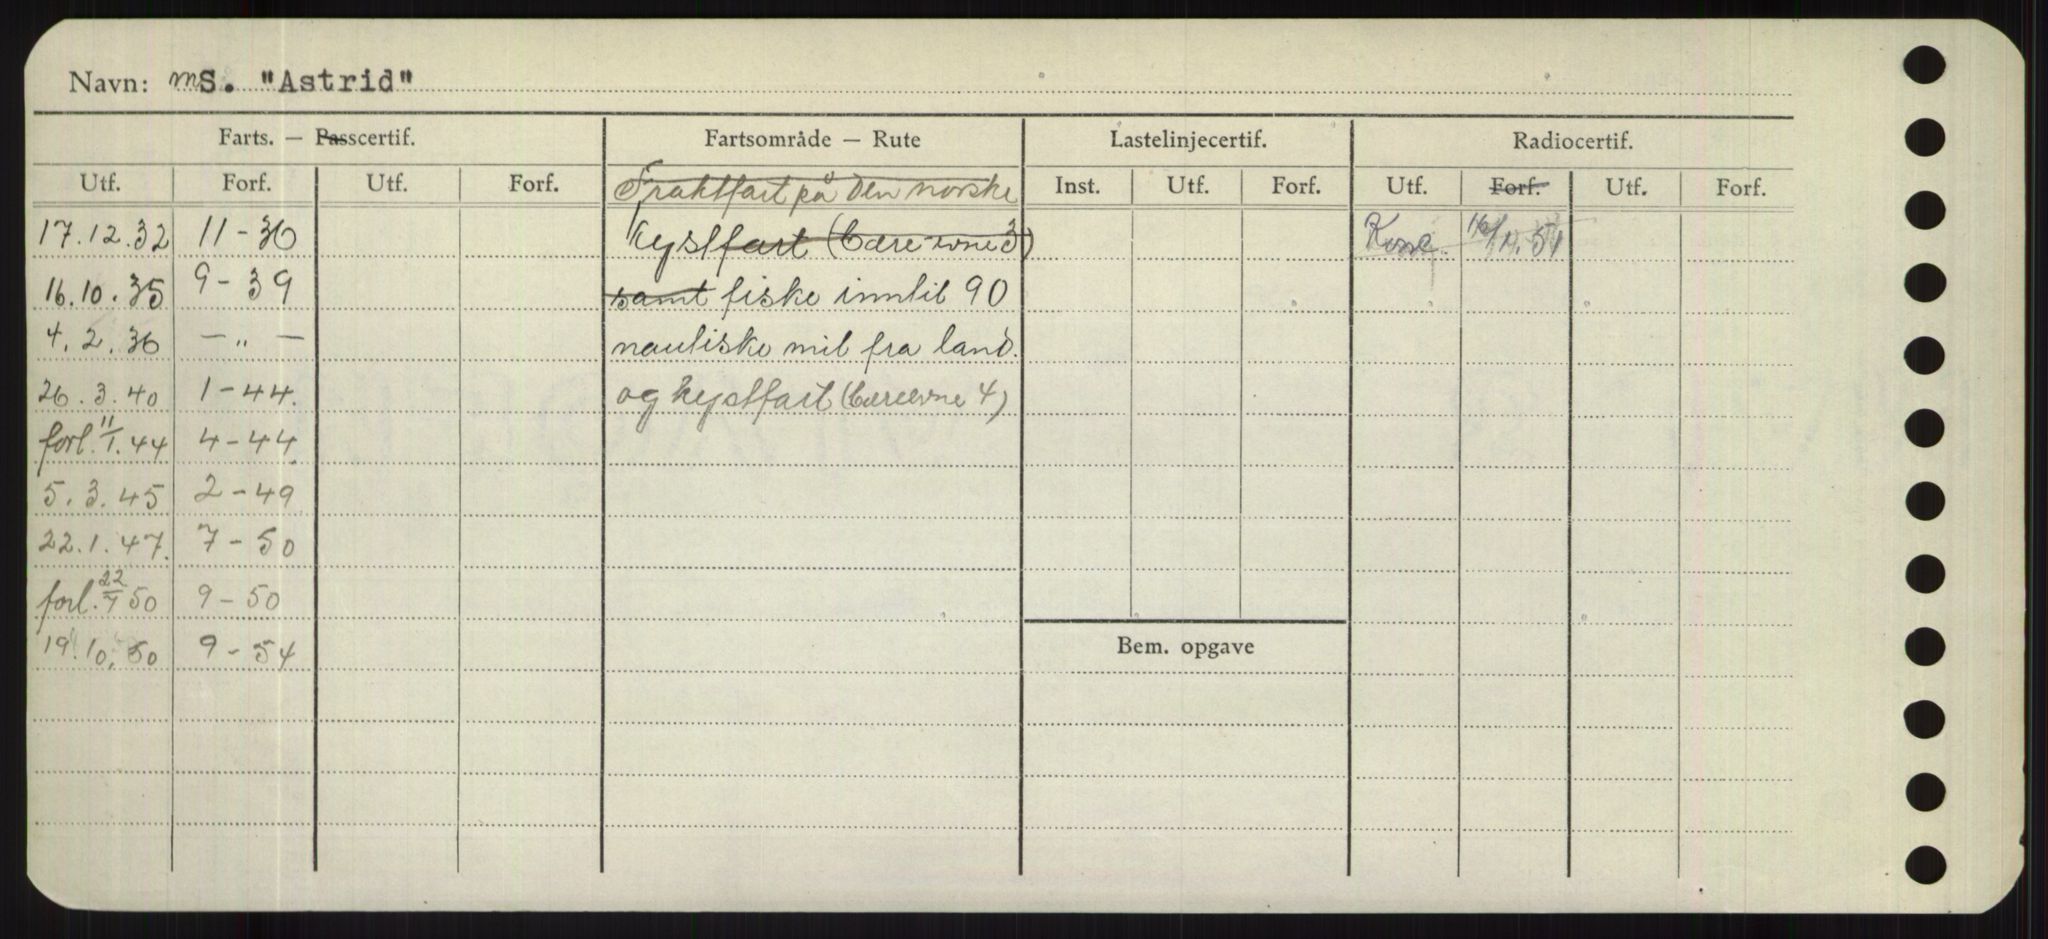 Navn: mS. "Astrid"
Farts. — Passcertif. Fartsområde — Rute Lastelinjecertif. Radiocertif.
Utf. Forf. Utf. Forf. Fraktfart på den norske Inst. Utf. Forf. Utf. Forf. Utf. Forf.
17.12.32 11-36 kystfart (Bære-evne 3) 16/11.51
16.10.35 9-39 samt fiske inntil 90
4.2.36 —„— nautiske mil fra land.
26.3.40 1-44. og kystfart (Bæreevne 4)
forl. 11/1.44 4-44
5.3.45 2-49
22.1.47. 7-50
forl. 22/7 50 9-50
19.10.50 9-54
Bem. opgave